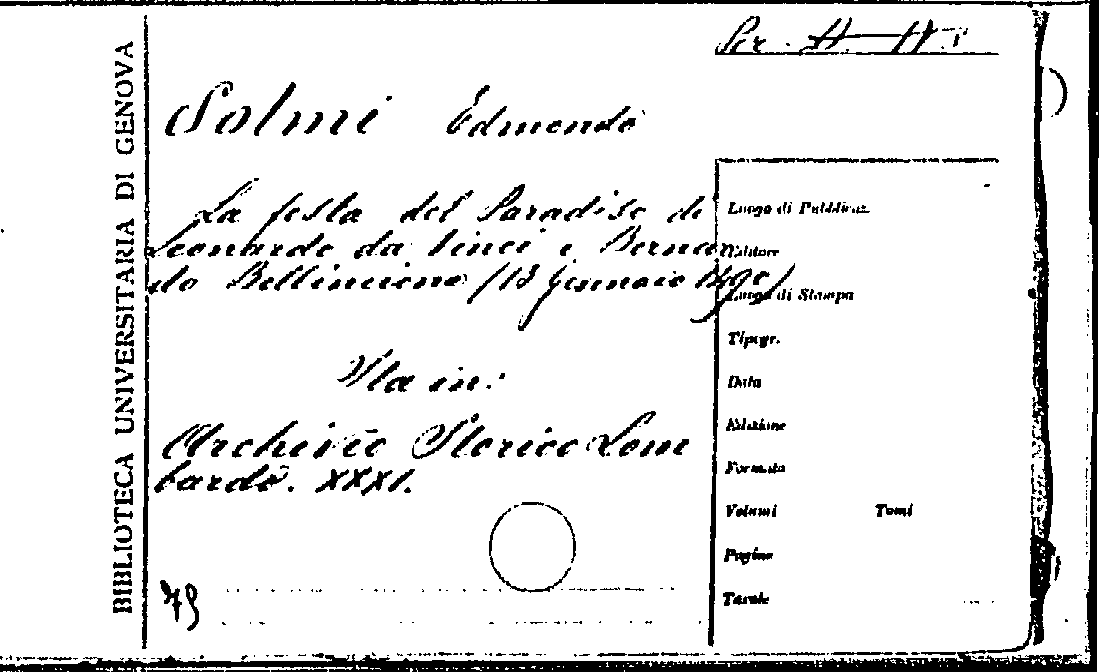 BIBLIOTECA UNIVERSITARIA DI GENOVA
Per.
Solmi Edmondo
La festa del Paradiso di
Leonardo da Vinci e Bernar
do Bellincione (13 Gennaio 1490)
Sta in:
Archivio Storico Lom
bardo. XXXI.
79
Luogo di Pubblicaz.
Editore
Luogo di Stampa
Tipogr.
Data
Edizione
Formato
Volumi Tomi
Pagine
Tavole